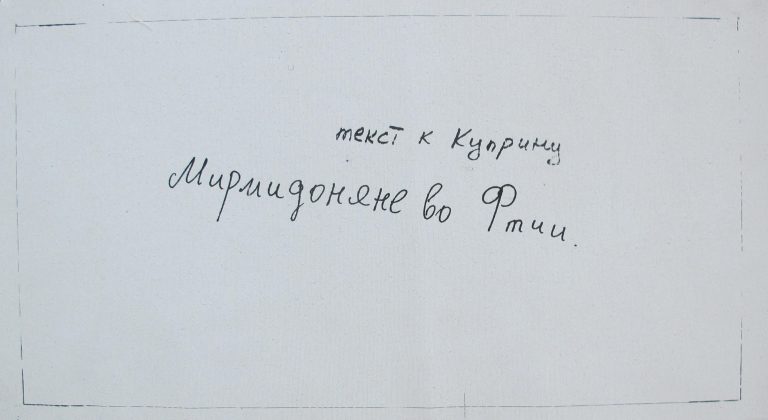 текст к Куприну
Мирмидоняне во Фтии.